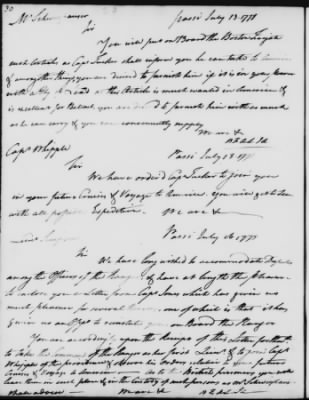 30
Mr. Schweighauser Passi July 13. 1778
Sir
You will put on Board the Boston Frigate
such Articles as Capt. Tucker shall inform you he can take to America
& among other things, you are desired to furnish him if it is in your power
with a Qty of Lead as this Article is much wanted in America & it
is excellent for Ballast you are desired to furnish him with as much
as he can carry & you can conveniently supply
We are &
Capt. Whipple Passi July 13. 177
Sir
We have ordered Capt. Tucker to join you
in your future Cruises & Voyage to America. you will get to Sea
with all possible Expedition. We are &
Passi July 16. 1778
Lieut. Simpson
Sir
We have long wished to accommodate
among the Officers of the Ranger, & have at length the pleasure
to inclose you a Letter from Capt. Jones which has given us
much pleasure for several Reasons, one of which is that it has
given us an Oppy to reinstate you on Board the Ranger
You are accordingly upon the Receipt of this Letter forthwith
to take the Command of the Ranger as her first Lieut. & to join Capt.
Whipple of the Providence & observe his Orders relative to your future
Cruises & Voyage to America. As to the British prisoners you will
leave them in such place & in the Custody of such persons as Mr. Schweighauser
shall advise We are &